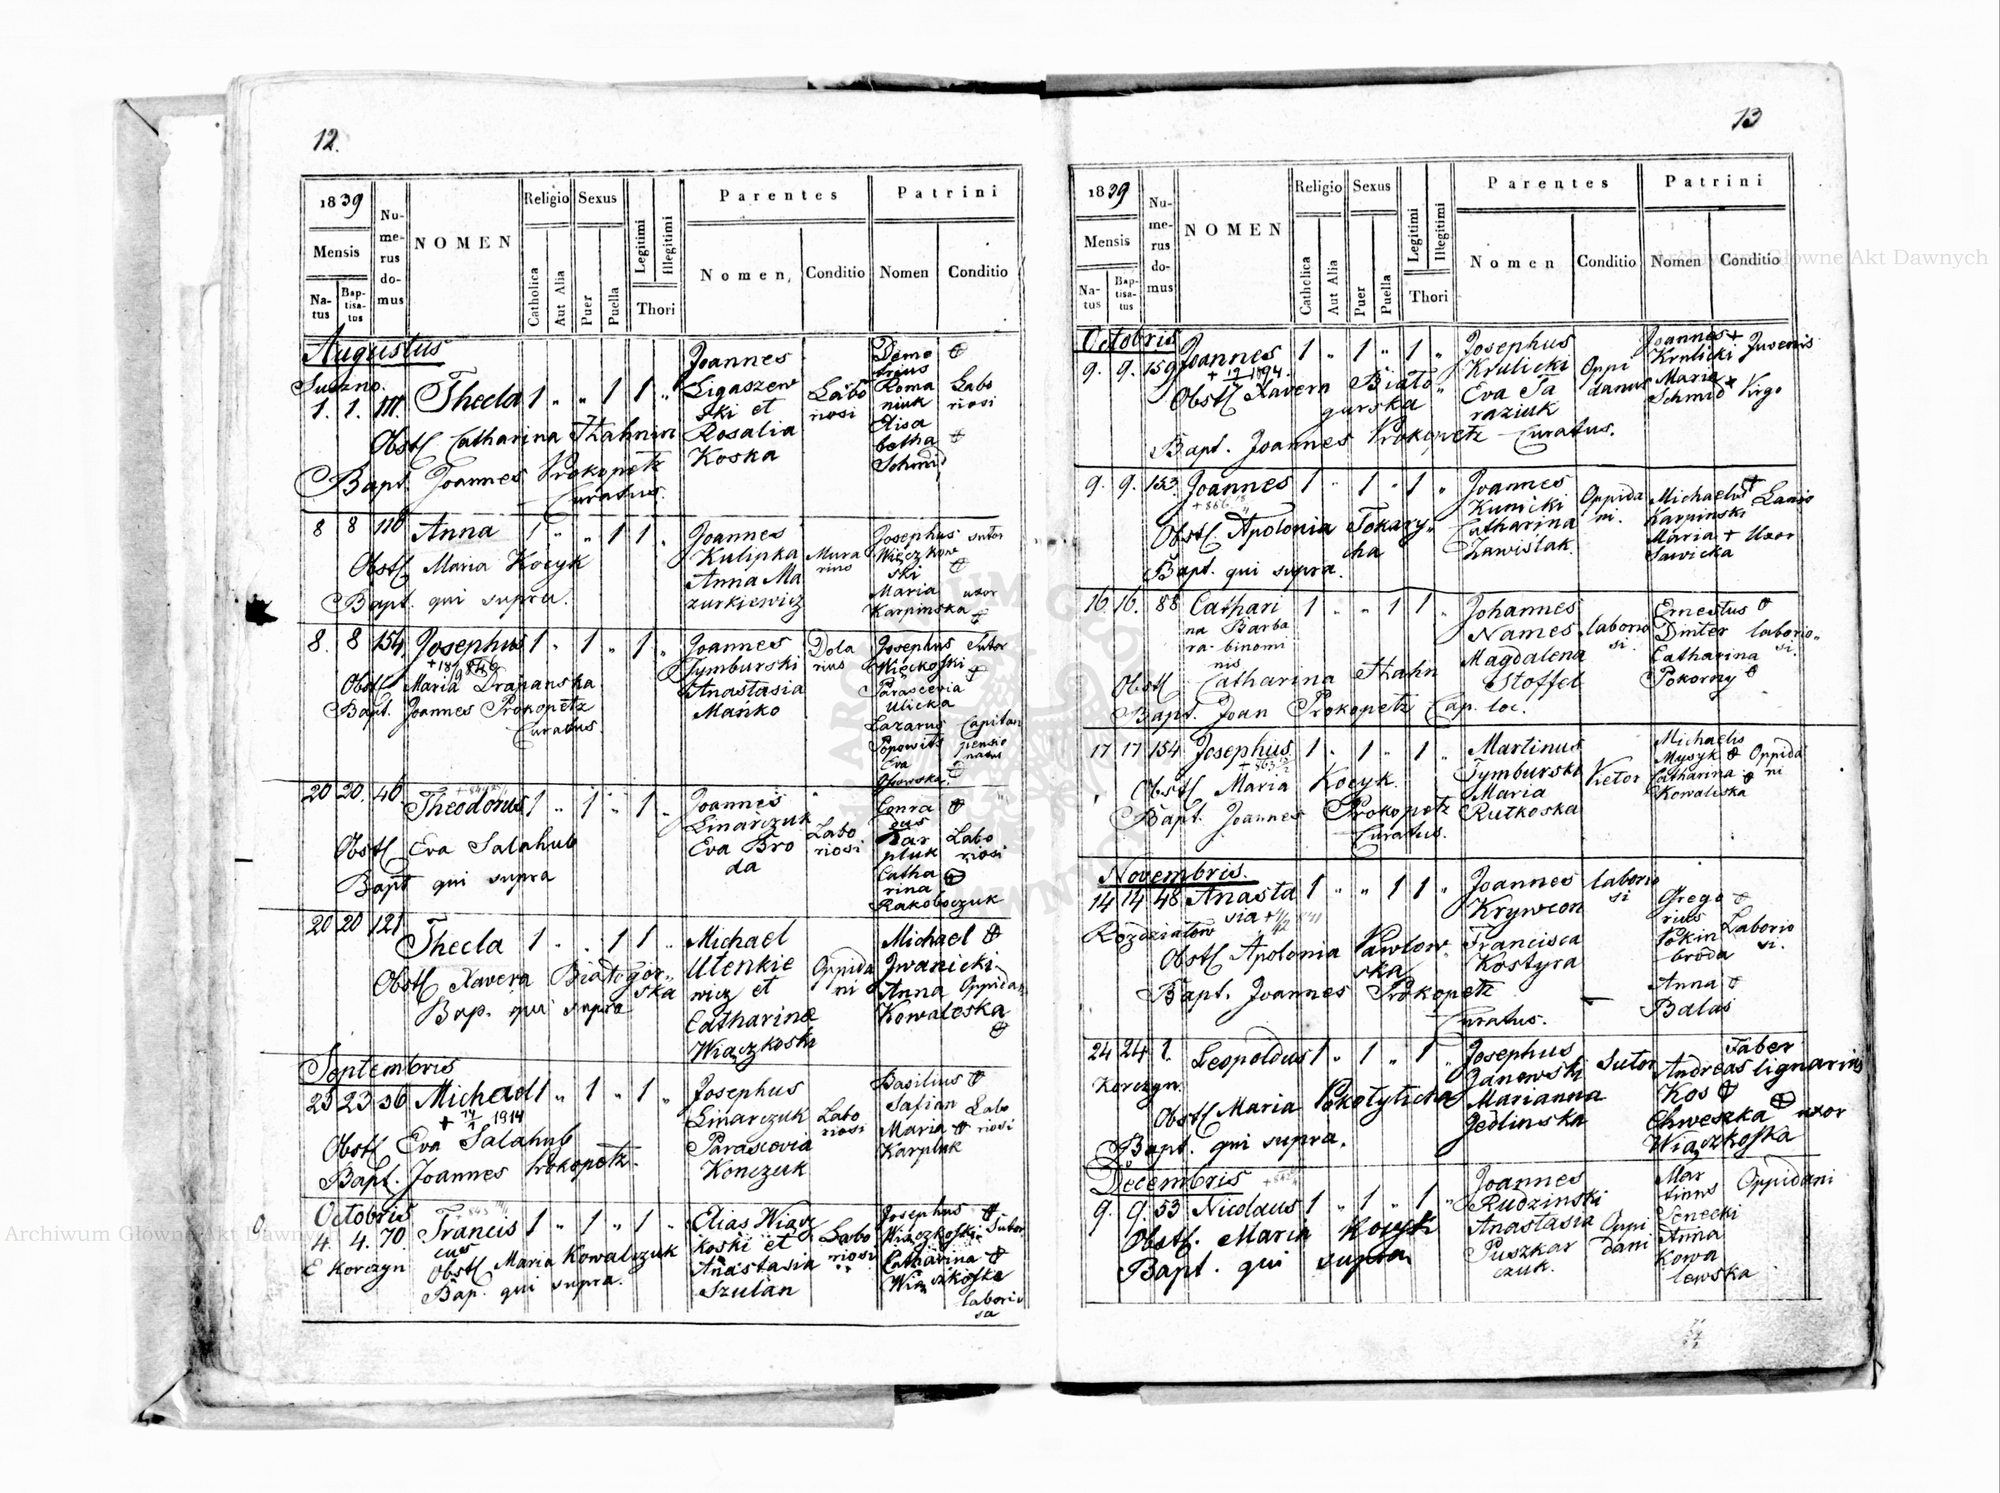 12.
1839
Mensis
Natus
Baptisatus
Numerus domus
NOMEN
Religio
Catholica
Aut Alia
Sexus
Puer
Puella
Legitimi
Illegitimi
Thori
Parentes
Nomen,
Conditio
Patrini
Nomen
Conditio
Augustus
1. 1. 111. Thecla 1 " " 1 1 "
Obst Catharina Thahnin
Bapt. Joannes Prokopetz
Curatus.
Joannes
Ligaszew
ski et
Rosalia
Koska
Labo
riosi
Deme
trius
Roma
niuk
Elisa
betha
Schmid
Labo
riosi
8 8 116 Anna 1 " " 1 1 "
Obst Maria Kocyk
Bapt. qui supra.
Joannes
Kulipka
Anna Ma
zurkiewicz
Mura
rius
Josephus sutor
Więczkow
ski
Maria uxor
Karpinska
8. 8 154 Josephus 1 " 1 " 1 "
Obst Maria Drapanska
Bapt. Joannes Prokopetz
Curatus.
Joannes
Tymburski
Anastasia
Mańko
Dola
rius
Josephus Sutor
Więckoski
Parascevia
Ulicka
Lazarus Capitan
Popowits pensio
Eva natus
20 20. 46 Theodorus 1 " 1 " 1 "
Obst Eva Salahub
Bapt qui supra
Joannes
Linarczuk
Eva Bro
da
Labo
riosi
Conra
dus
Kar
pluk
Catha
rina
Rakoboczuk
Labo
riosi
20 20 121 Thecla 1 " " 1 1 "
Obst Xavera Białogor
ska
Bap. qui supra
Michael
Utenkie
wicz et
Catharina
Wiączkoski
Oppida
ni
Michael
Iwanicki
Anna Oppidan
Kowaleska
Septembris
23 23 36 Michael 1 " 1 " 1 "
+ 14/1 1914
Obst Eva Salahub
Bapt. Joannes Prokopetz.
Josephus
Linarczuk
Parascevia
Konczuk
Labo
riosi
Basilius
Safian Labo
Maria riosi
Karpluk
Octobris
4. 4. 70 Francis 1 " 1 " 1 "
cus
E Korczyn
Obst Maria Kowalczuk
Bap. qui supra.
Elias Wiącz
koski et
Anastasia
Szulan
Labo
riosi
Josephus
Wiączkoski Sutor
Catharina
Wiączkoska
laborio
sa
13
1839
Mensis
Natus
Baptisatus
Numerus domus
NOMEN
Religio
Catholica
Aut Alia
Sexus
Puer
Puella
Legitimi
Illegitimi
Thori
Parentes
Nomen
Conditio
Patrini
Nomen
Conditio
Octobris
9. 9. 159 Joannes 1 " 1 " 1 "
Obst Xavera Biało
gorska
Bapt. Joannes Prokopetz Curatus.
Josephus
Krulicki
Eva Ta
raziuk
Oppi
danus
Joannes +
Krulicki Juvenis
Maria +
Schmid Virgo
9. 9. 153 Joannes 1 " 1 " 1 "
Obst Apolonia Tokary
cha
Bapt. qui supra.
Joannes
Kunicki
Catharina
Zawislak.
Oppida
ni.
Michaelus Lanio
Karpinski
Maria + Uxor
Sawicka
16. 16. 88 Cathari 1 " " 1 1 "
na Barba
ra binomi
nis
Obst Catharina Thahn
Bapt. Joan Prokopetz Cap. loc.
Johannes
Names
Magdalena
Stoffel
laborio
si.
Ernestus
Dinter laborio
Catharina si.
Pokorny
17 17 154 Josephus 1 " 1 " 1 "
Obst Maria Kocyk.
Bapt. Joannes Prokopetz
Curatus.
Martinus
Tymburski
Maria
Rutkoska
Vietor
Michaelis
Mysyk Oppida
Catharina ni
Kowaleska
Novembris.
14 14 48 Anasta 1 " " 1 1 "
sia
Rozdziałow
Obst Apolonia Pawlow
ska
Bapt. Joannes Prokopetz
Curatus.
Joannes
Krywcon
Francisca
Kostyra
laborio
si
Grego
rius Laborio
Pokin si.
broda
Anna
Balas
24 24 1. Leopoldus 1 " 1 " 1 "
Korczyn
Obst Maria Pokotylicha
Bapt. qui supra.
Josephus
Janewski
Marianna
Jedlinska
Sutor
Faber
Andreas lignarius
Kos
Chweszka uxor
Wiączkoska
Decembris
9. 9. 53 Nicolaus 1 " 1 " 1 "
Obst. Maria Kocyk
Bapt. qui supra
Joannes
Rudzinski
Anastasia
Puszkar
czuk.
Oppi
dani
Mar
tinus Oppidani
Senecki
Anna
Kowa
lewska
Archiwum Główne Akt Dawnych
Archiwum Główne Akt Dawnych